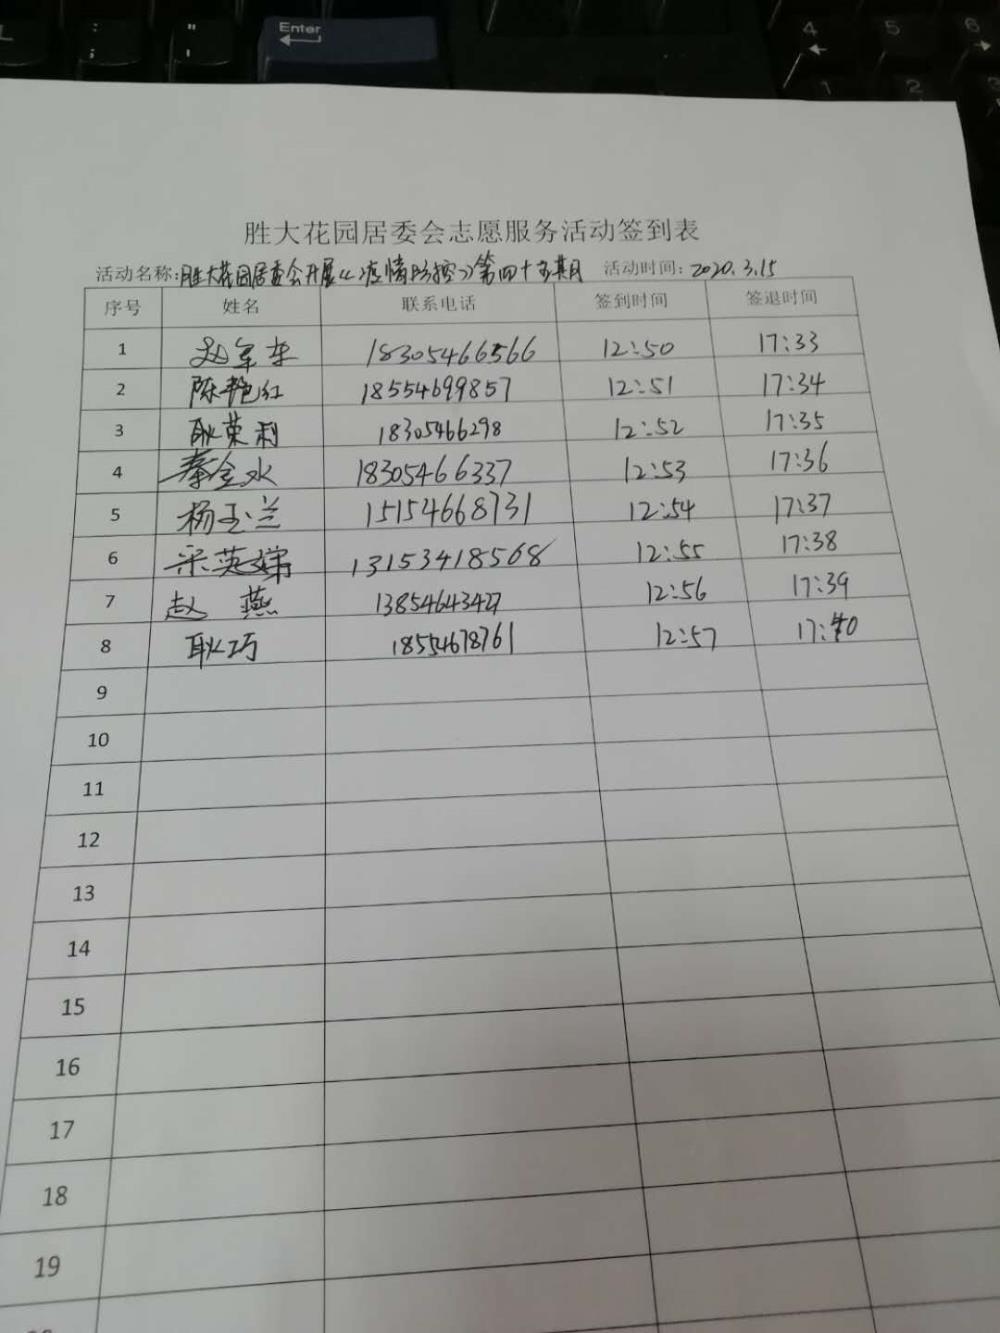 Enter
4
5
6
1
2
3
胜大花园居委会志愿服务活动签到表
活动名称:胜大花园居委会开展《疫情防控》第四十五期 活动时间:2020.3.15
序号 姓名 联系电话 签到时间 签退时间
1 赵军东 18305466566 12:50 17:33
2 陈艳红 18554699857 12:51 17:34
3 耿荣利 18305466298 12:52 17:35
4 秦金水 18305466337 12:53 17:36
5 杨玉兰 15154668731 12:54 17:37
6 宋英娣 13153418568 12:55 17:38
7 赵燕 13854643427 12:56 17:39
8 耿巧 18554678761 12:57 17:40
9
10
11
12
13
14
15
16
17
18
19